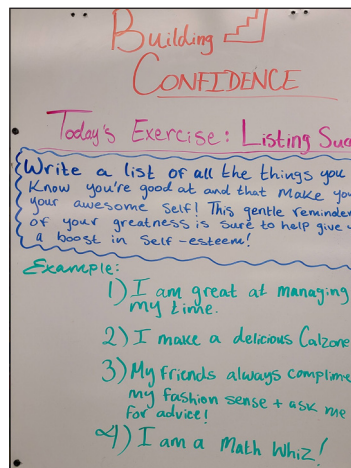 Building
CONFIDENCE
Today's Exercise: Listing
Write a list of all the things you
Know you're good at and that make
your awesome self! This gentle reminder
of your greatness is sure to help give
a boost in self-esteem!
Example:
1) I am great at managing
my time.
2) I make a delicious Calzone
3) My friends always
my fashion sense + ask me
for advice!
4) I am a Math Whiz!